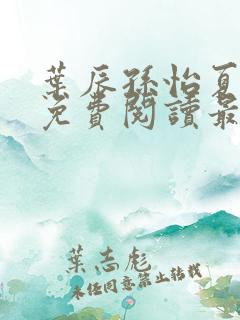 葉辰孫怡夏
免費閱讀最
葉志彪
未經同意禁止轉載